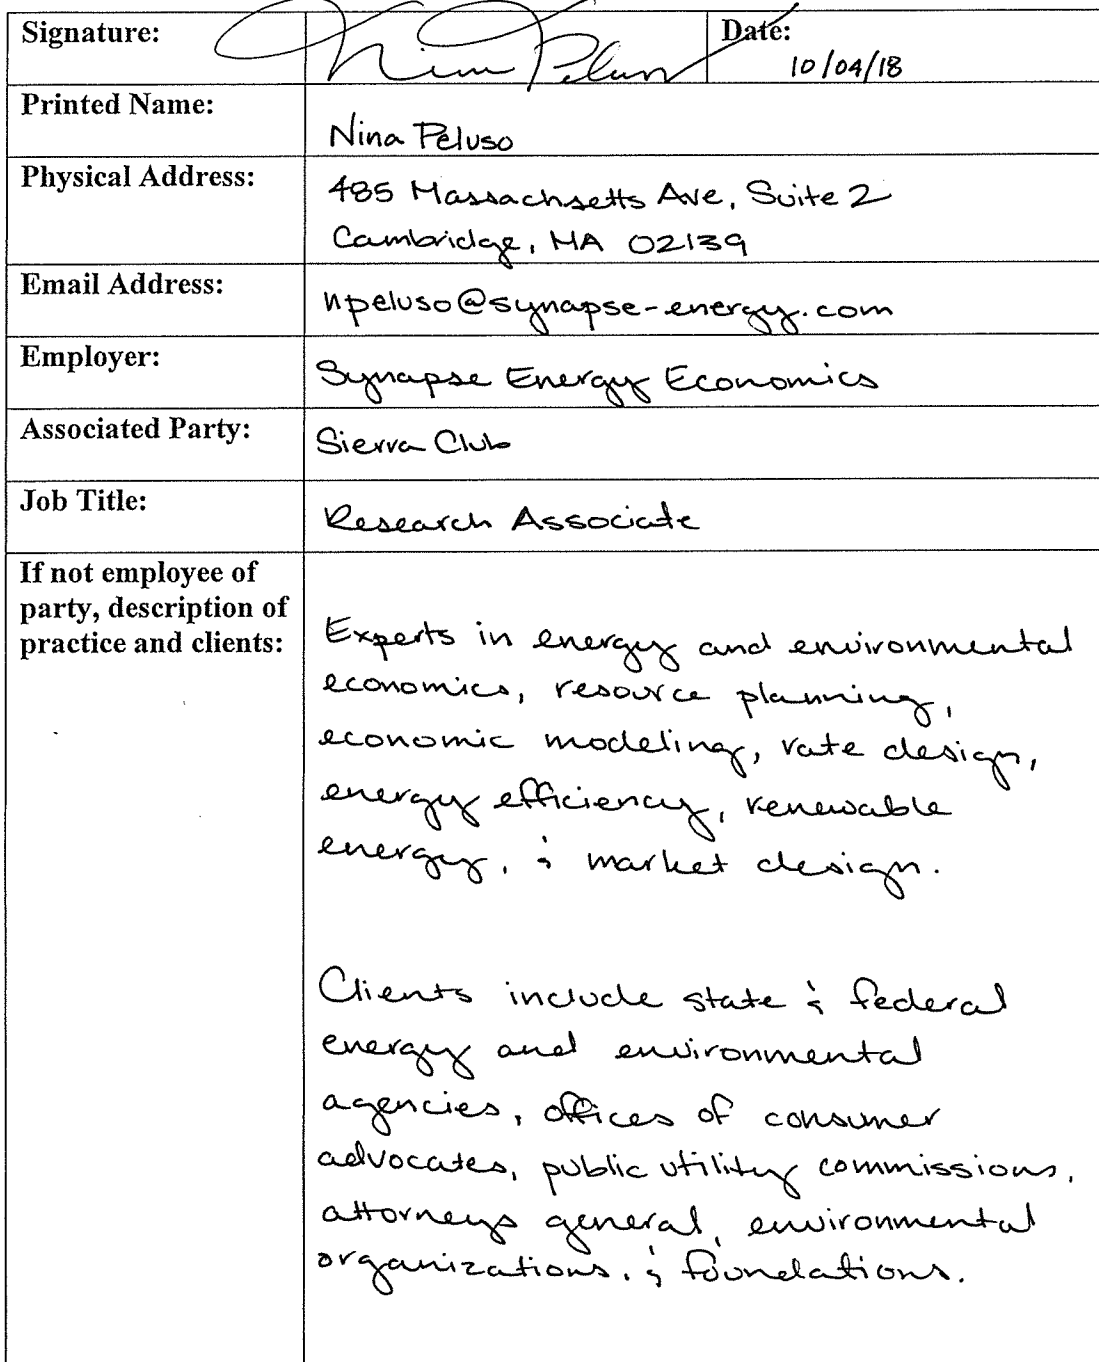 Signature: Nina Peluso Date:
10/04/18
Printed Name:
Nina Peluso
Physical Address:
485 Massachsetts Ave, Suite 2
Cambridge, MA 02139
Email Address:
npeluso@synapse-energy.com
Employer:
Synapse Energy Economics
Associated Party:
Sierra Club
Job Title:
Research Associate
If not employee of
party, description of
practice and clients:
Experts in energy and environmental
economics, resource planning,
economic modeling, rate design,
energy efficiency, renewable
energy, & market design.
Clients include state & federal
energy and environmental
agencies, offices of consumer
advocates, public utility commissions,
attorneys general, environmental
organizations, & foundations.